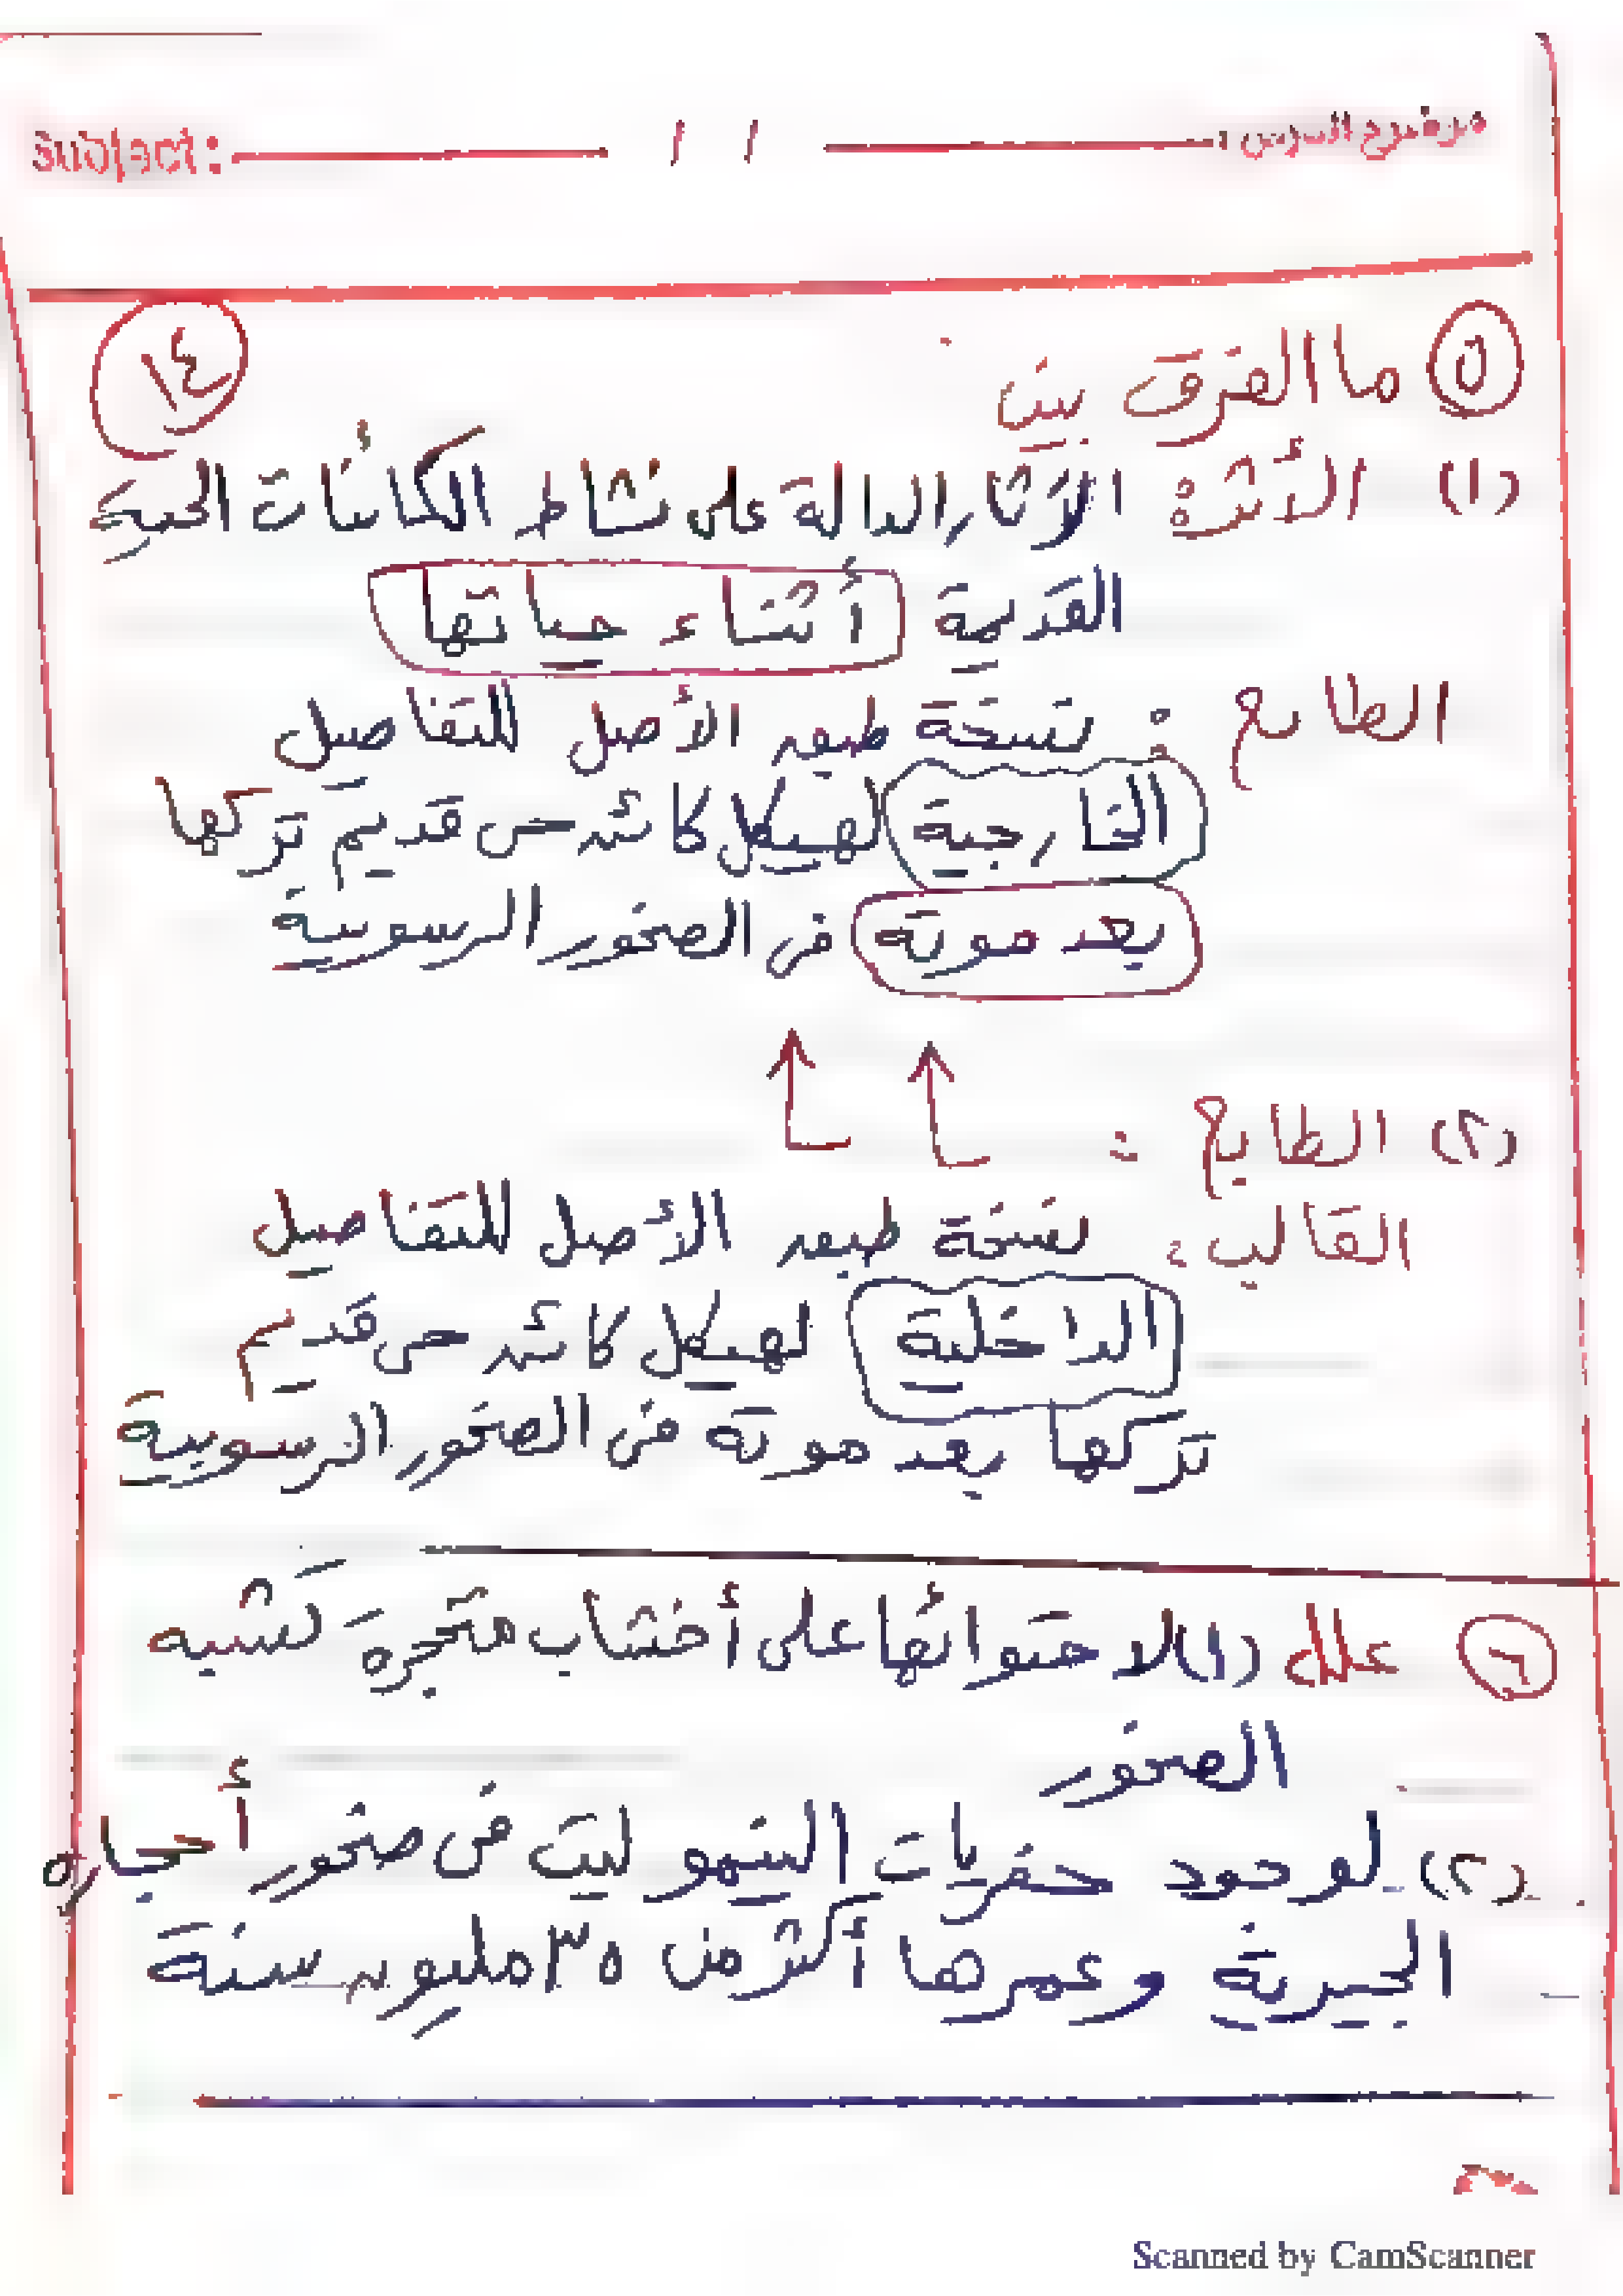 Subject: / / موضوع الدرس :
١٤
٥ ما الفرق بين
(١) الأثر الآثار الدالة على نشاط الكائنات الحية
القديمة أثناء حياتها
الطابع : نسخة طبق الأصل للتفاصيل
الخارجية لهيكل كائن حى قديم تركها
بعد موته فى الصخور الرسوبية
(٢) الطابع :
القالب : نسخة طبق الأصل للتفاصيل
الداخلية لهيكل كائن حى قديم
تركها بعد موته فى الصخور الرسوبية
٦ علل (١) لاحتوائها على أخشاب متحجرة تشبه
الصخور
(٢) لوجود حفريات النيموليت فى صخور أحجاره
الجيرية وعمرها أكثر من ٣٥ مليون سنة
Scanned by CamScanner